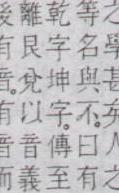 之學甚人之
等名與不曰有
乾字坤字。傳至
離艮兌以音義
後有音。有音而